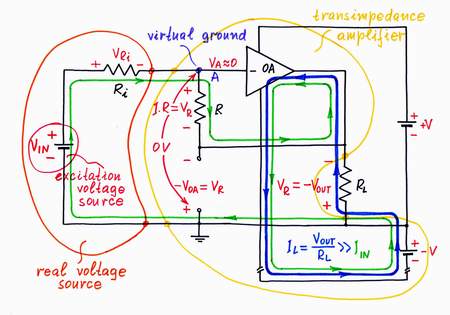 transimpedance
amplifier
virtual ground
VRi
+ -
Ri
VA≈0
A
-
OA
+
I.R = VR
+
R
-
0V
+V
+
-
VIN
+
-
excitation
voltage
source
-VOA = VR
-
+
VR = -VOUT
-
RL
+
IL = VOUT/RL >> IIN
-V
+
-
real voltage
source